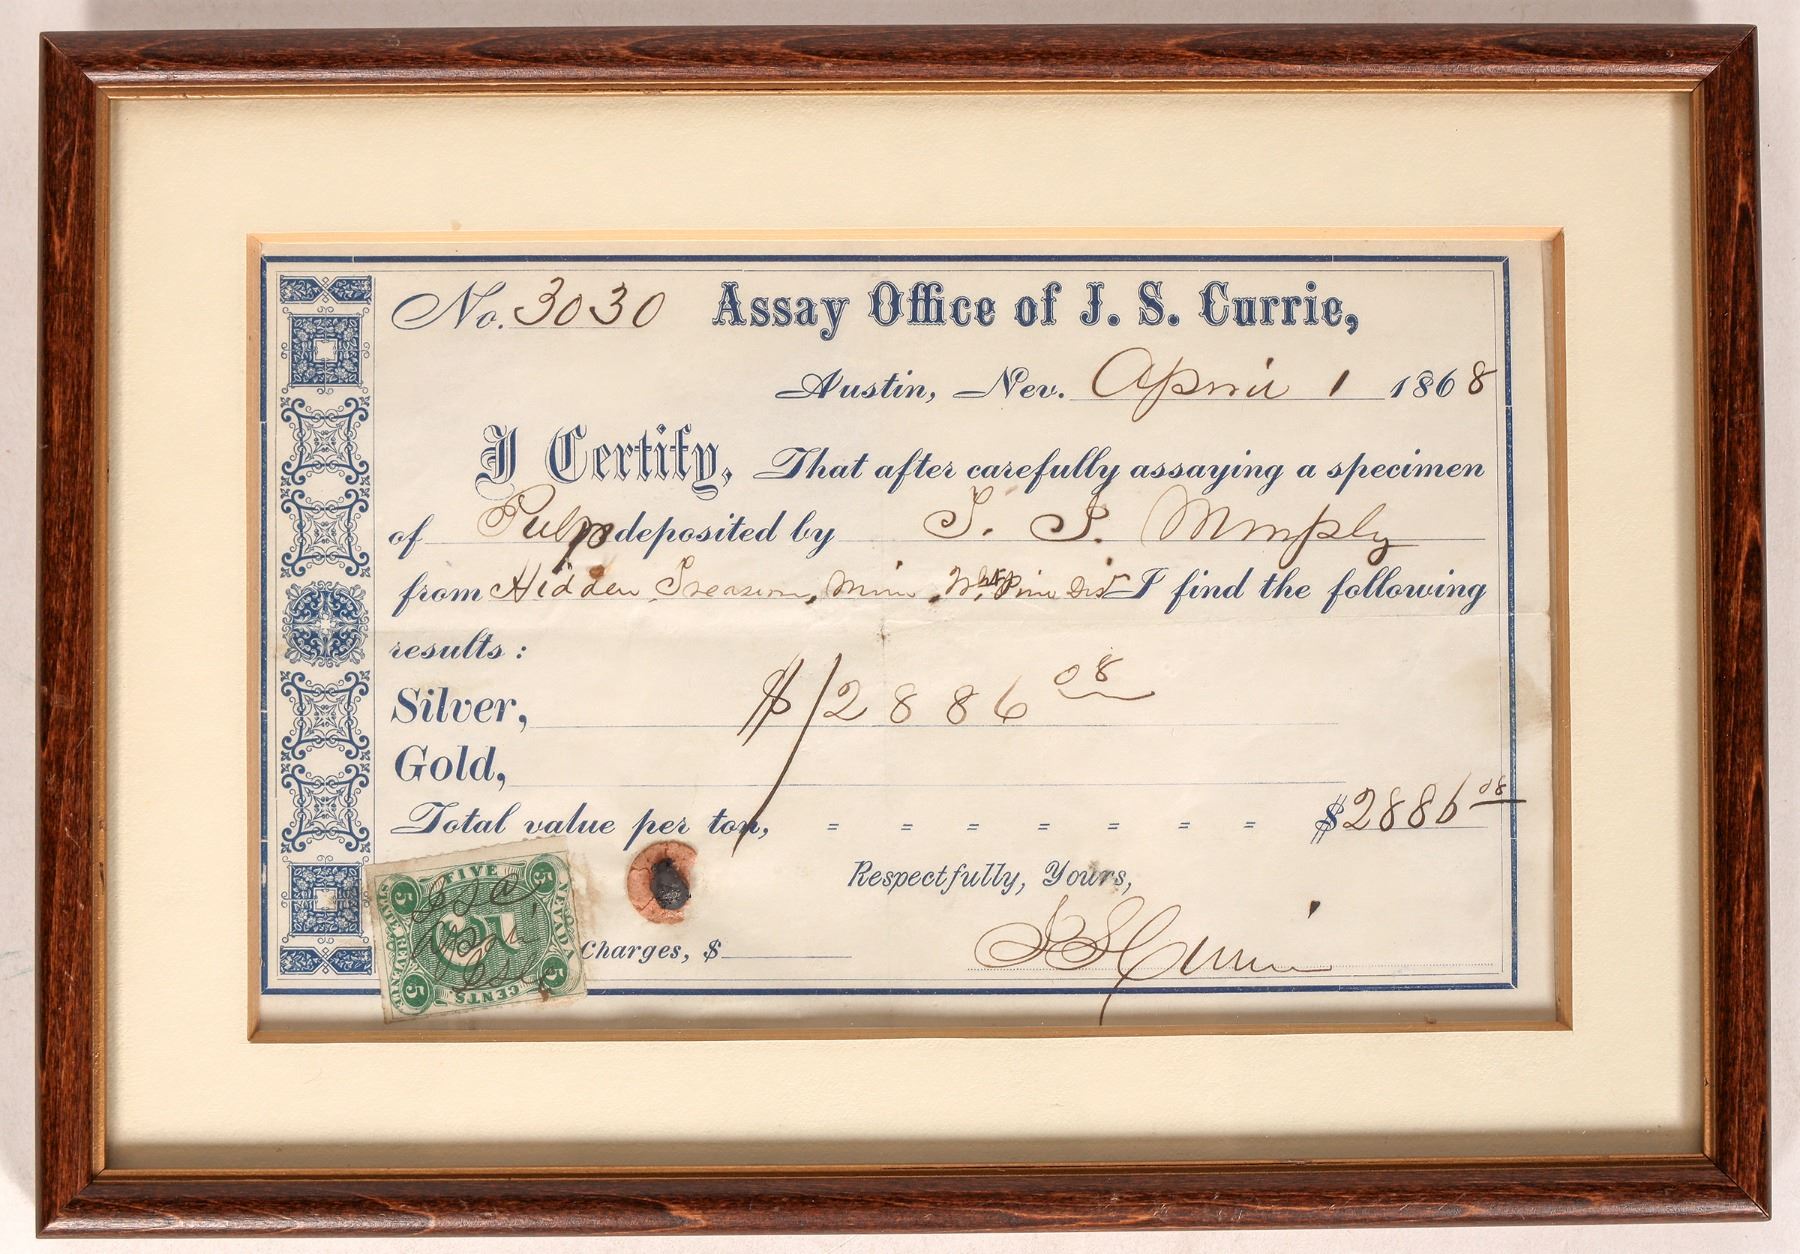 No. 3030 Assay Office of J. S. Currie,
Austin, Nev. April 1 1868
I Certify, That after carefully assaying a specimen
of Pulp deposited by
from Hidden Treasure, Mine, Wht Pine Dist I find the following
results:
Silver, $ 2886 08
Gold,
Total value per ton, = = = = = = = = $2886 08
Respectfully, Yours,
Charges, $ J S Currie
FIVE
NEVADA
STATE REVENUE
CENTS.
5 5 5 5